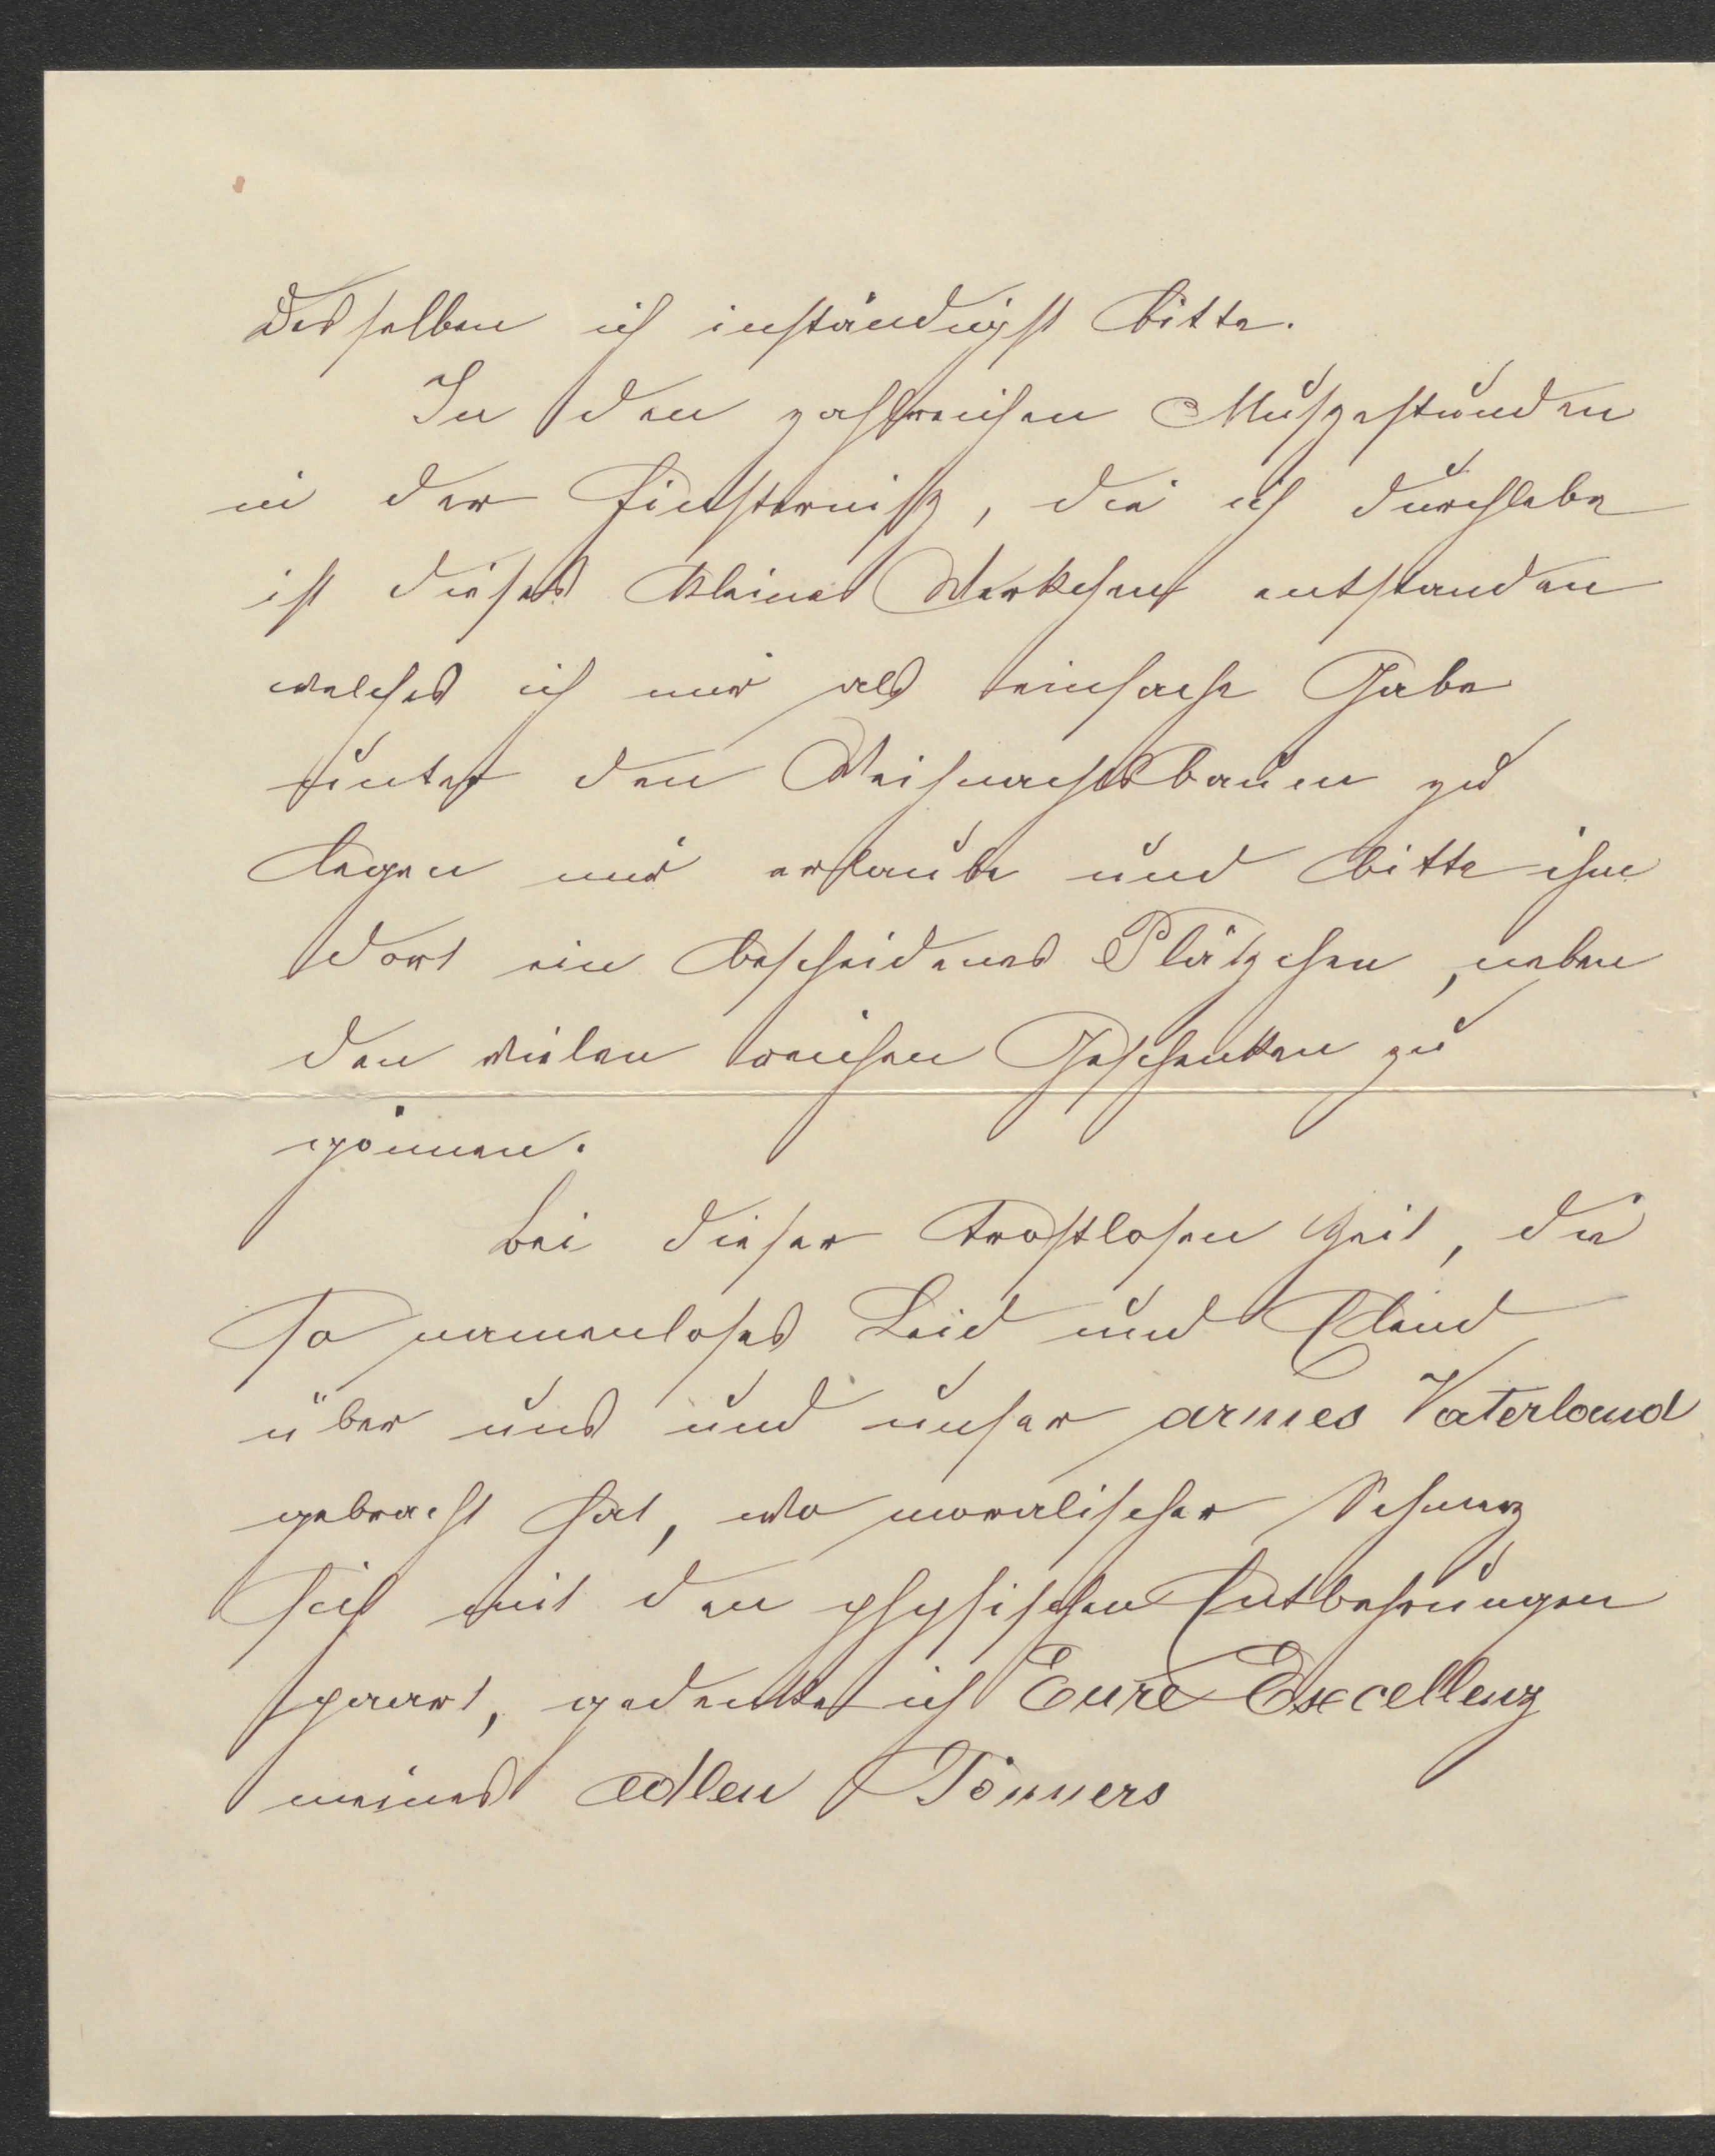 desselben ich inständigst bitte.
In den zahlreichen Mußestunden
in der Finsterniß, die ich durchlebe
ist dieses kleine Werkchen entstanden
welches ich mir als einfache Gabe
unter den Weihnachtsbaum zu
legen mir erlaube und bitte ihm
dort ein bescheidenes Plätzchen, neben
den vielen reichen Geschenken zu
gönnen.
Bei dieser trostlosen Zeit, die
so namenloses Leid und Elend
über uns und unser armes Vaterland
gebracht hat, wo moralischer Schmerz
sich mit den physischen Entbehrungen
paart, gedenke ich Eure Excellenz
meines edlen Gönners